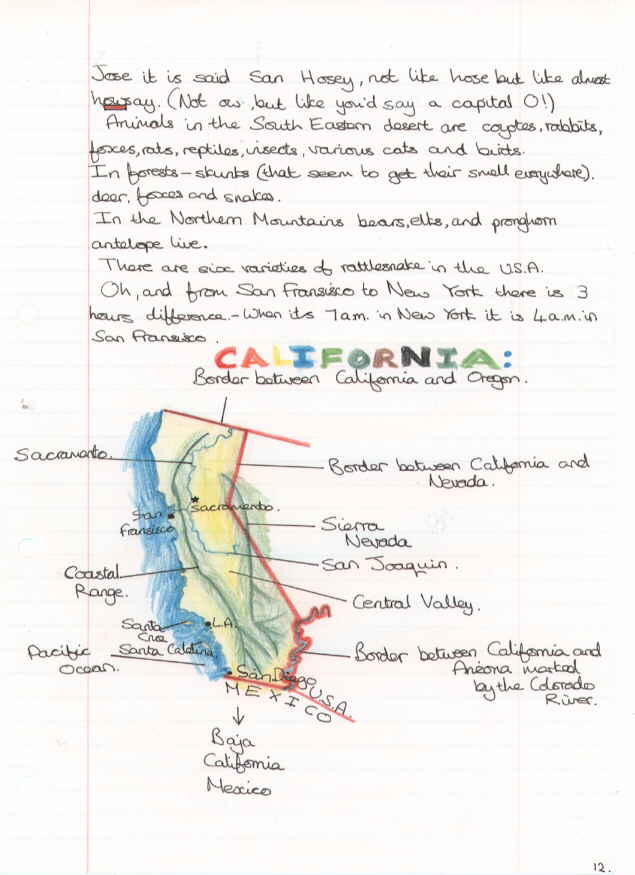 Jose it is said San Hosey, not like hose but like almost
howsay. (Not ow, but like you'd say a capital O!)
Animals in the South Eastern desert are coyotes, rabbits,
foxes, rats, reptiles, insects, various cats and birds.
In forests - skunks (that seem to get their smell everywhere).
deer, foxes and snakes.
In the Northern Mountains bears, elks, and pronghorn
antelope live.
There are six varieties of rattlesnake in the U.S.A.
Oh, and from San Fransisco to New York there is 3
hours difference. - When its 7am. in New York it is 4a.m. in
San Fransisco.
CALIFORNIA:
Border between California and Oregon.
Sacramento
Border between California and
Nevada.
Sacramento.
San
Fransisco
Sierra
Nevada
San Joaquin.
Coastal
Range.
Central Valley.
Santa
Cruz
L.A.
Santa Catalina
Pacific
Ocean.
Border between California and
Arizona marked
by the Colorado
River.
San Diego
U.S.A.
MEXICO
Baja
California
Mexico
12.